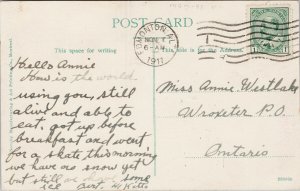 POST CARD
EDMONTON, AL
NOV
6-AM
1911
This space for writing
This side is for the Address.
Hello Annie
How is the world
using you, still
alive and able to
eat, got up before
breakfast and went
for a skate this morning
we have no snow yet
but still we have some
ice Bert.
Miss Annie Westlake
Wroxeter P.O
Ontario